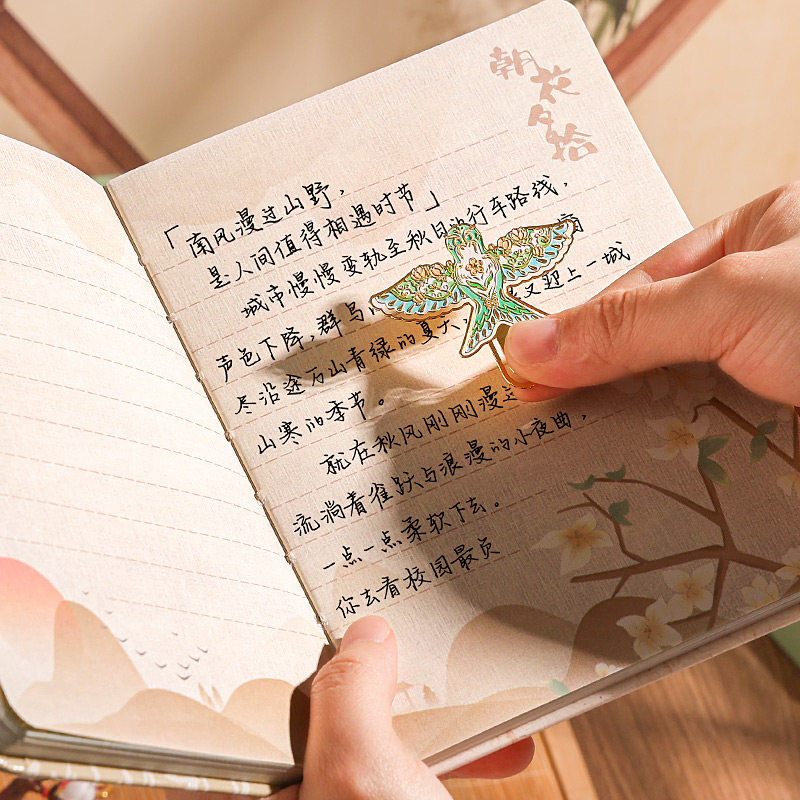 朝花夕拾
「南风漫过山野，
是人间值得相遇时节」
城市慢慢变轨至秋日的行车路线，
声色下降，群鸟 又迎上一城
尽沿途万山青绿的夏天，
山寒的季节。
就在秋风刚刚漫
流淌着雀跃与浪漫的小夜曲，
一点一点柔软下去。
你去看校园最